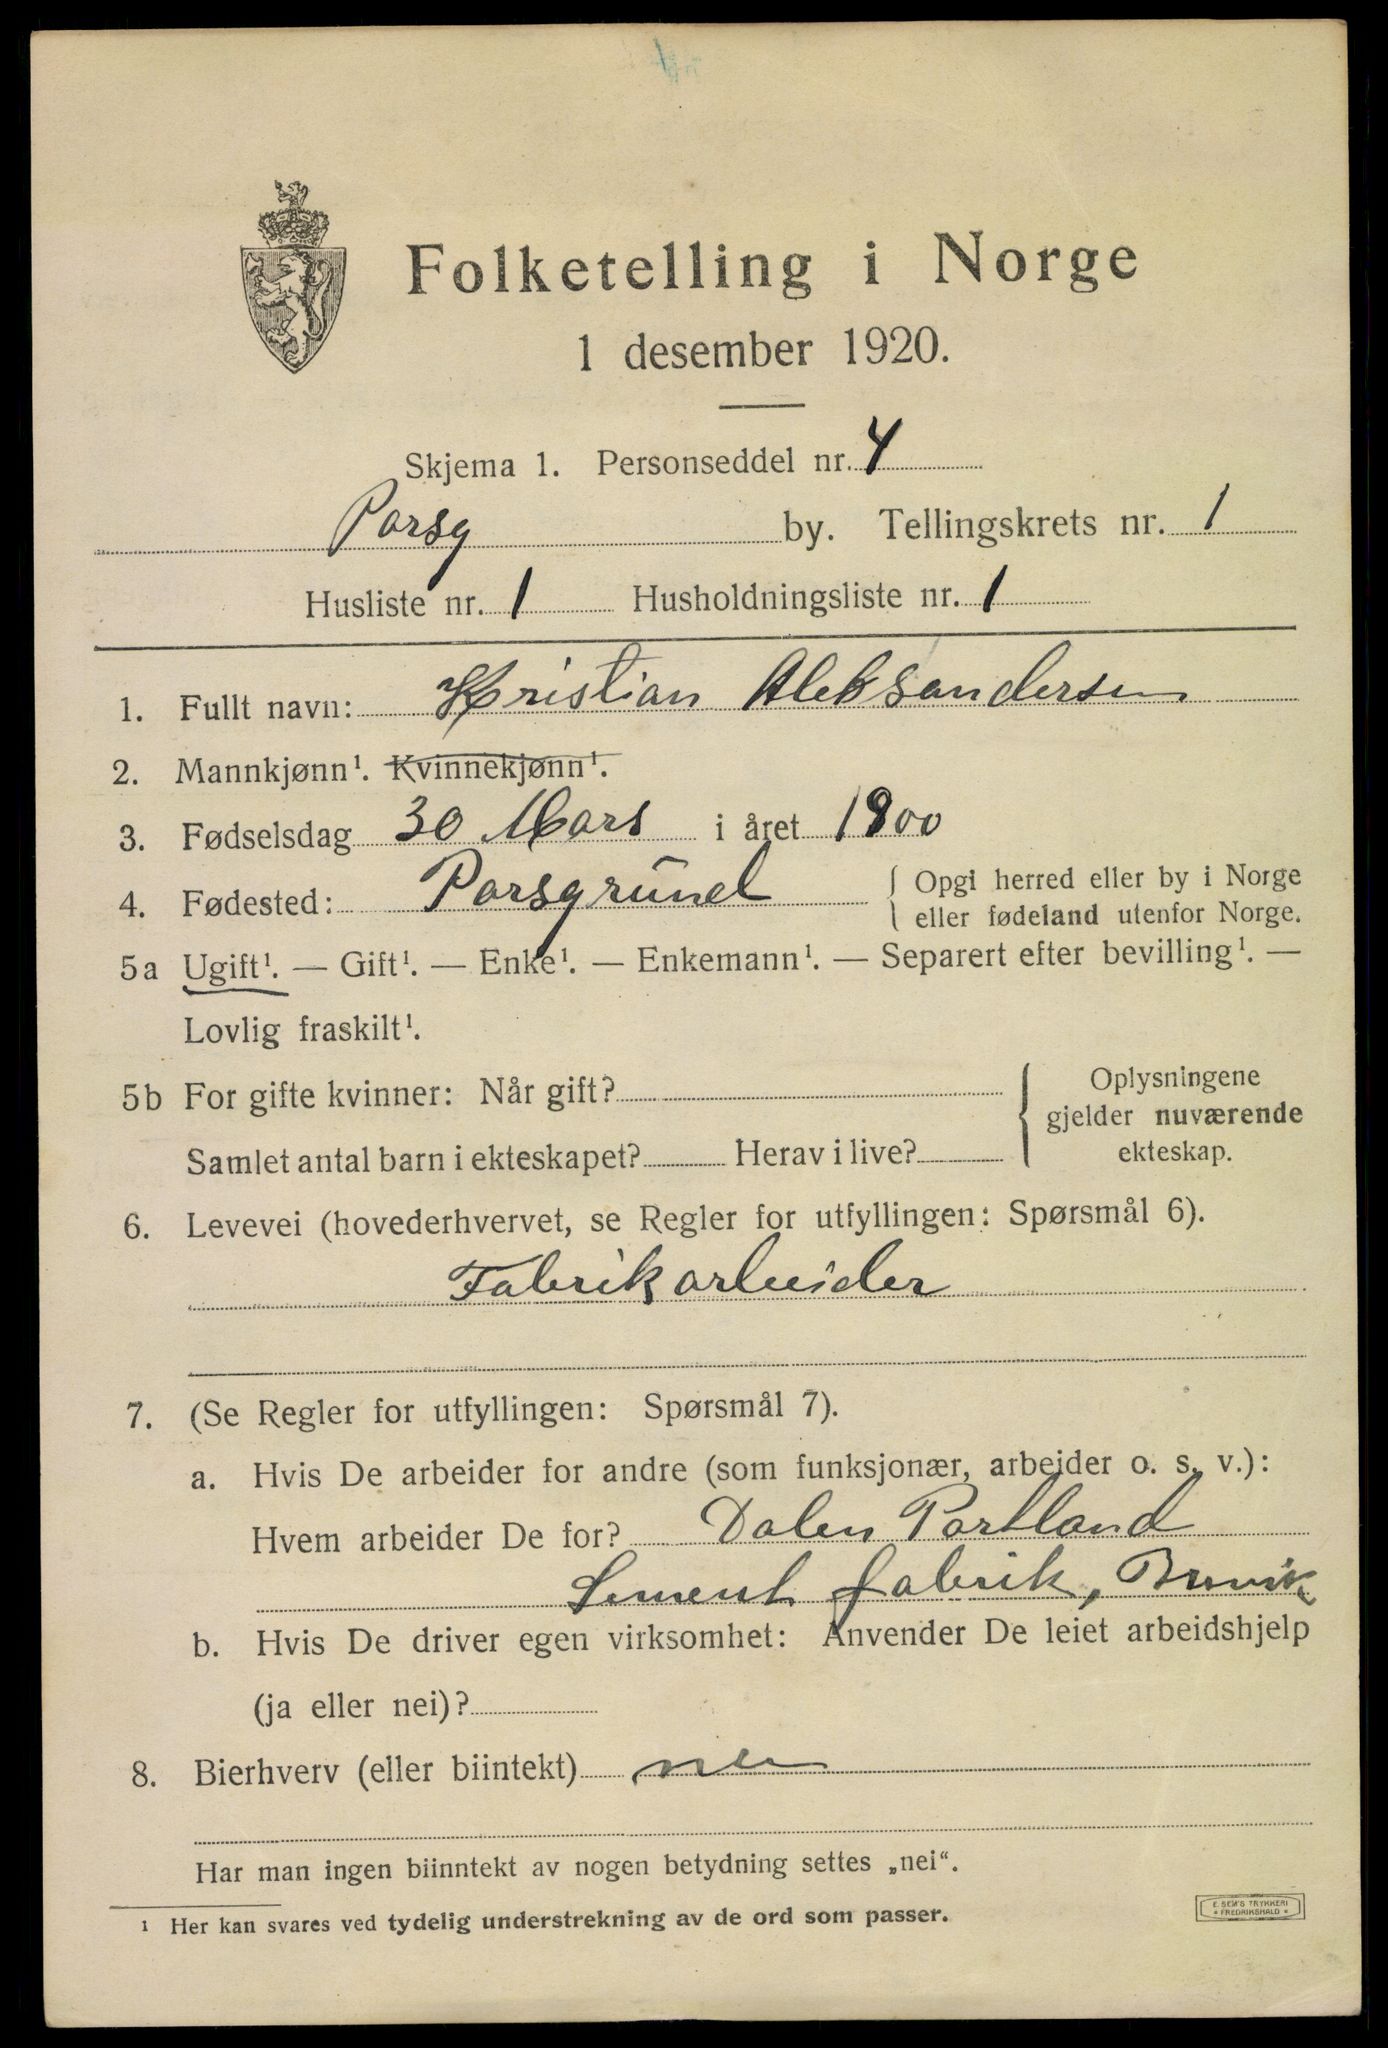 Folketelling i Norge
1 desember 1920.
Skjema 1. Personseddel nr. 4
Porsg by. Tellingskrets nr. 1
Husliste nr. 1 Husholdningsliste nr. 1
1. Fullt navn: Kristian Aleksandersen
2. Mannkjønn¹. Kvinnekjønn¹.
3. Fødselsdag 30 Mars i året 1900
4. Fødested: Porsgrund { Opgi herred eller by i Norge
eller fødeland utenfor Norge.
5a Ugift¹. — Gift¹. — Enke¹. — Enkemann¹. — Separert efter bevilling¹. —
Lovlig fraskilt¹.
5b For gifte kvinner: Når gift?
Samlet antal barn i ekteskapet? Herav i live?
Oplysningene
gjelder nuværende
ekteskap.
6. Levevei (hovederhvervet, se Regler for utfyllingen: Spørsmål 6).
Fabrikarbeider
7. (Se Regler for utfyllingen: Spørsmål 7).
a. Hvis De arbeider for andre (som funksjonær, arbeider o. s. v.):
Hvem arbeider De for? Dalen Portland
Sement fabrik, Brevik
b. Hvis De driver egen virksomhet: Anvender De leiet arbeidshjelp
(ja eller nei)?
8. Bierhverv (eller biintekt) nei
Har man ingen biinntekt av nogen betydning settes „nei“.
¹ Her kan svares ved tydelig understrekning av de ord som passer.
E. SEM'S TRYKKERI
FREDRIKSHALD